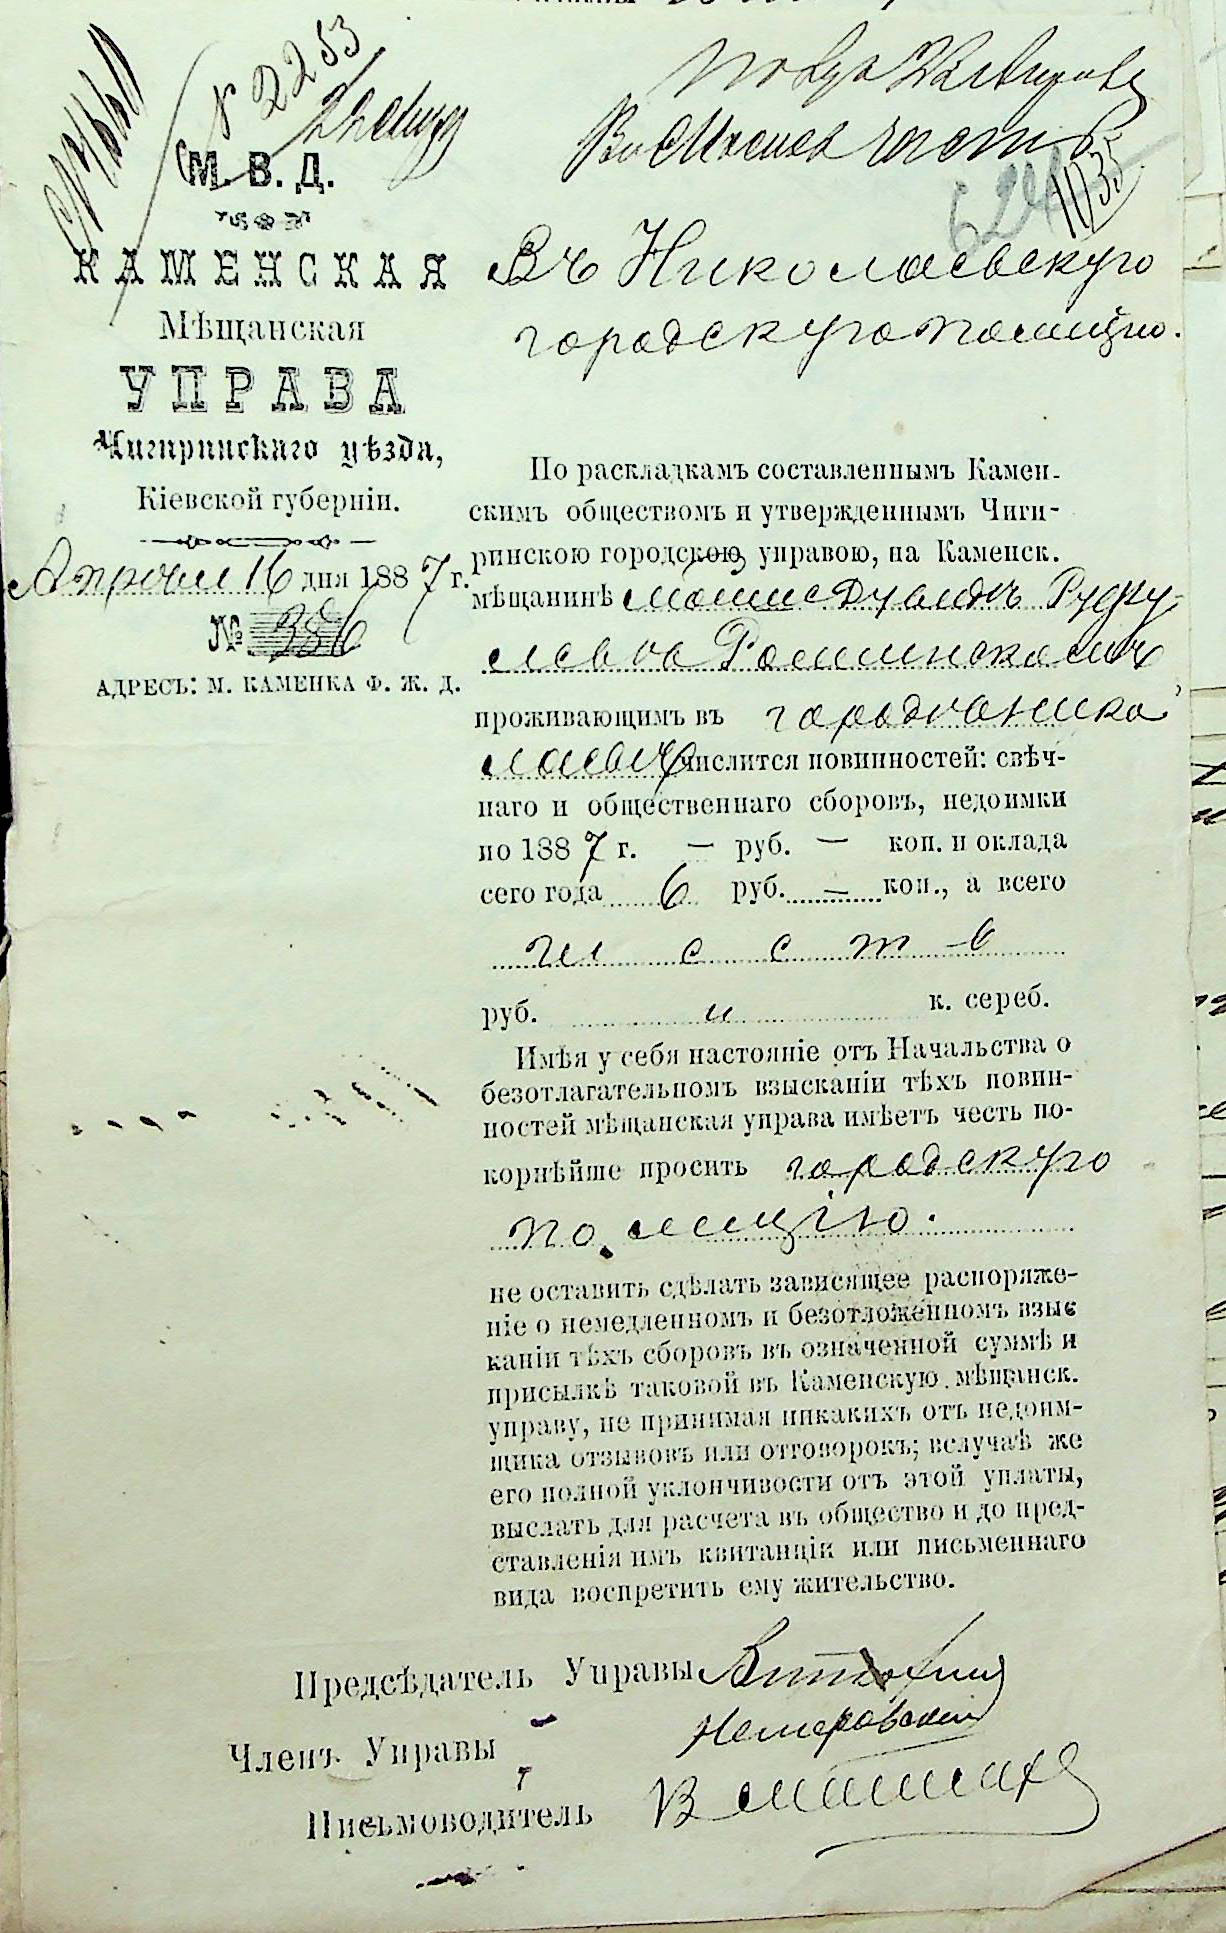 № 2253
М. В. Д.
КАМЕНСКАЯ
Мѣщанская
УПРАВА
Чигиринскаго уѣзда,
Кіевской губерніи.
Апреля 16 дня 1887 г.
№ 386
АДРЕСЪ: М. КАМЕНКА Ф. Ж. Д.
часть
1035
Въ Николаевскую
городскую полицію.
По раскладкамъ составленнымъ Камен-
скимъ обществомъ и утвержденнымъ Чиги-
ринскою городскою управою, на Каменск.
мѣщанинѣ
проживающимъ въ город Нико
лаевѣ числится повинностей: свѣч-
наго и общественнаго сборовъ, недоимки
по 1887 г. — руб. — коп. и оклада
сего года 6 руб. — коп., а всего
шесть
руб. и к. сереб.
Имѣя у себя настояніе отъ Начальства о
безотлагательномъ взысканіи тѣхъ повин-
ностей мѣщанская управа имѣетъ честь по-
корнѣйше просить городскую
полицію.
не оставить сдѣлать зависящее распоряже-
ніе о немедленномъ и безотложенномъ взыс
каніи тѣхъ сборовъ въ означенной суммѣ и
присылкѣ таковой въ Каменскую мѣщанск.
управу, не принимая никакихъ отъ недоим-
щика отзывовъ или отговорокъ; вслучаѣ же
его полной уклончивости отъ этой уплаты,
выслать для расчета въ общество и до пред-
ставленія имъ квитанціи или письменнаго
вида воспретить ему жительство.
Предсѣдатель Управы
Членъ Управы
Письмоводитель